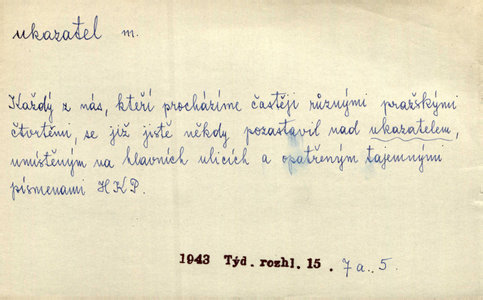 ukazatel m.
Každý z nás, kteří procházíme častěji různými pražskými
čtvrtěmi, se již jistě někdy pozastavil nad ukazatelem,
umístěným na hlavních ulicích a opatřeným tajemnými
písmenami HKP.
1943 Týd. rozhl. 15. 7a. 5.